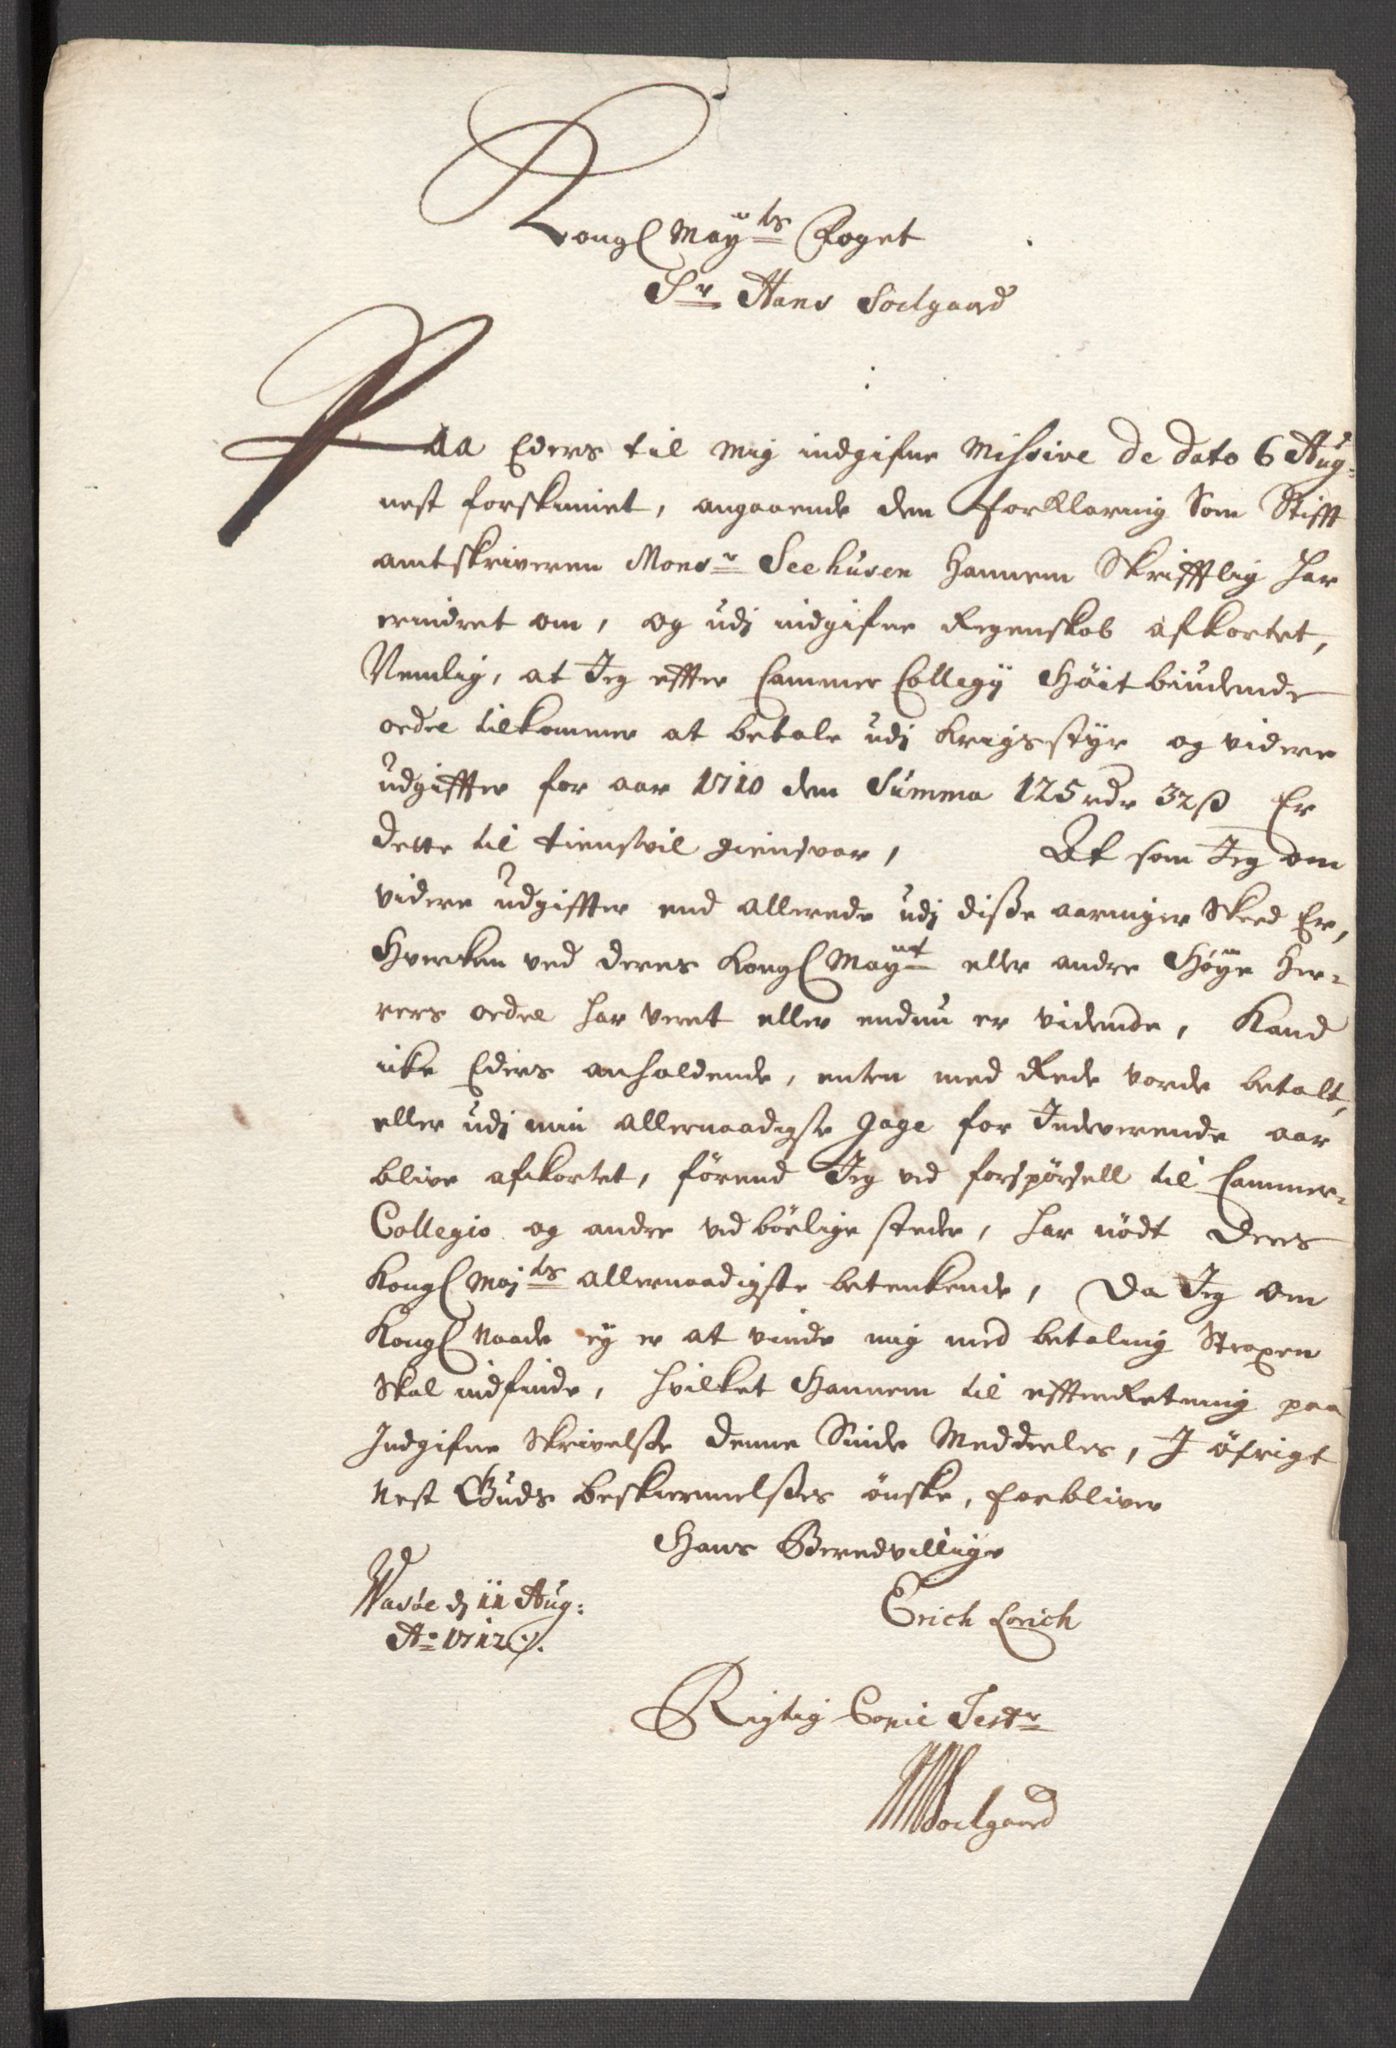 Kongl May:ts Foget
Sr Hans Soelgaard
Paa Eders til mig indgifne Missive de dato 6 Aug:
nest forskinnet, angaaende den forklaring Som Stifft
amtskriveren Monsr Seehusen hannem Skrifftlig har
erindret om, og udj indgifne Regenskab afkortet,
Nemlig, at Jeg effter Cammer Collegij Høit biudende
ordre tilkommer at betale udj krigsstyr og videre
udgiffter for aar 1710 den Summa 125 rdr 32 ß Er
dette til tienstvil giensvar, At som Jeg om
videre udgiffter end allerede udj disse aaringer Skeed Er,
Hvercken ved deres Kongl Mayt eller andre Høye Her-
rers ordre har veret eller endnu er vidende, Kand
icke Eders anholdende, enten med Rede vorde betalt,
eller udj min allernaadigste gage for Indeverende aar
blive afkortet, førend Jeg ved forspørsell til Cammer-
Collegio og andre ved børlige steder, har nødt Deres
Kongl Maj:ts allernaadigste betenkende, Da Jeg om
Kongl Naade ej er at vinde mig med betaling Straxen
Skal indfinde, hvilket Hannem til effterRetning paa
Indgifne Skrivelse denne Sinde Meddeeles, J øfrigt
Nest Guds beskiermelses ønske, forbliver
Hans Beredvillige
Vasøe d 11 Aug:
Erich Lorich
Ao 1712
Rigtig Copie Tester
HSoelgaard